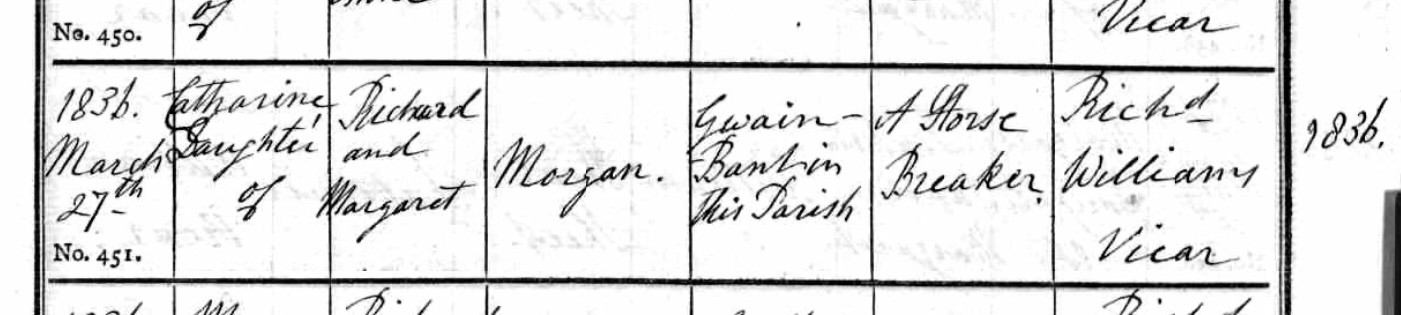 of
Vicar
No. 450.
1836.
March
27th
No. 451.
Catharine
Daughter
of
Richard
and
Margaret
Morgan.
Gwain-
this Parish
A Horse
Breaker.
Richd
Williams
Vicar
1836.